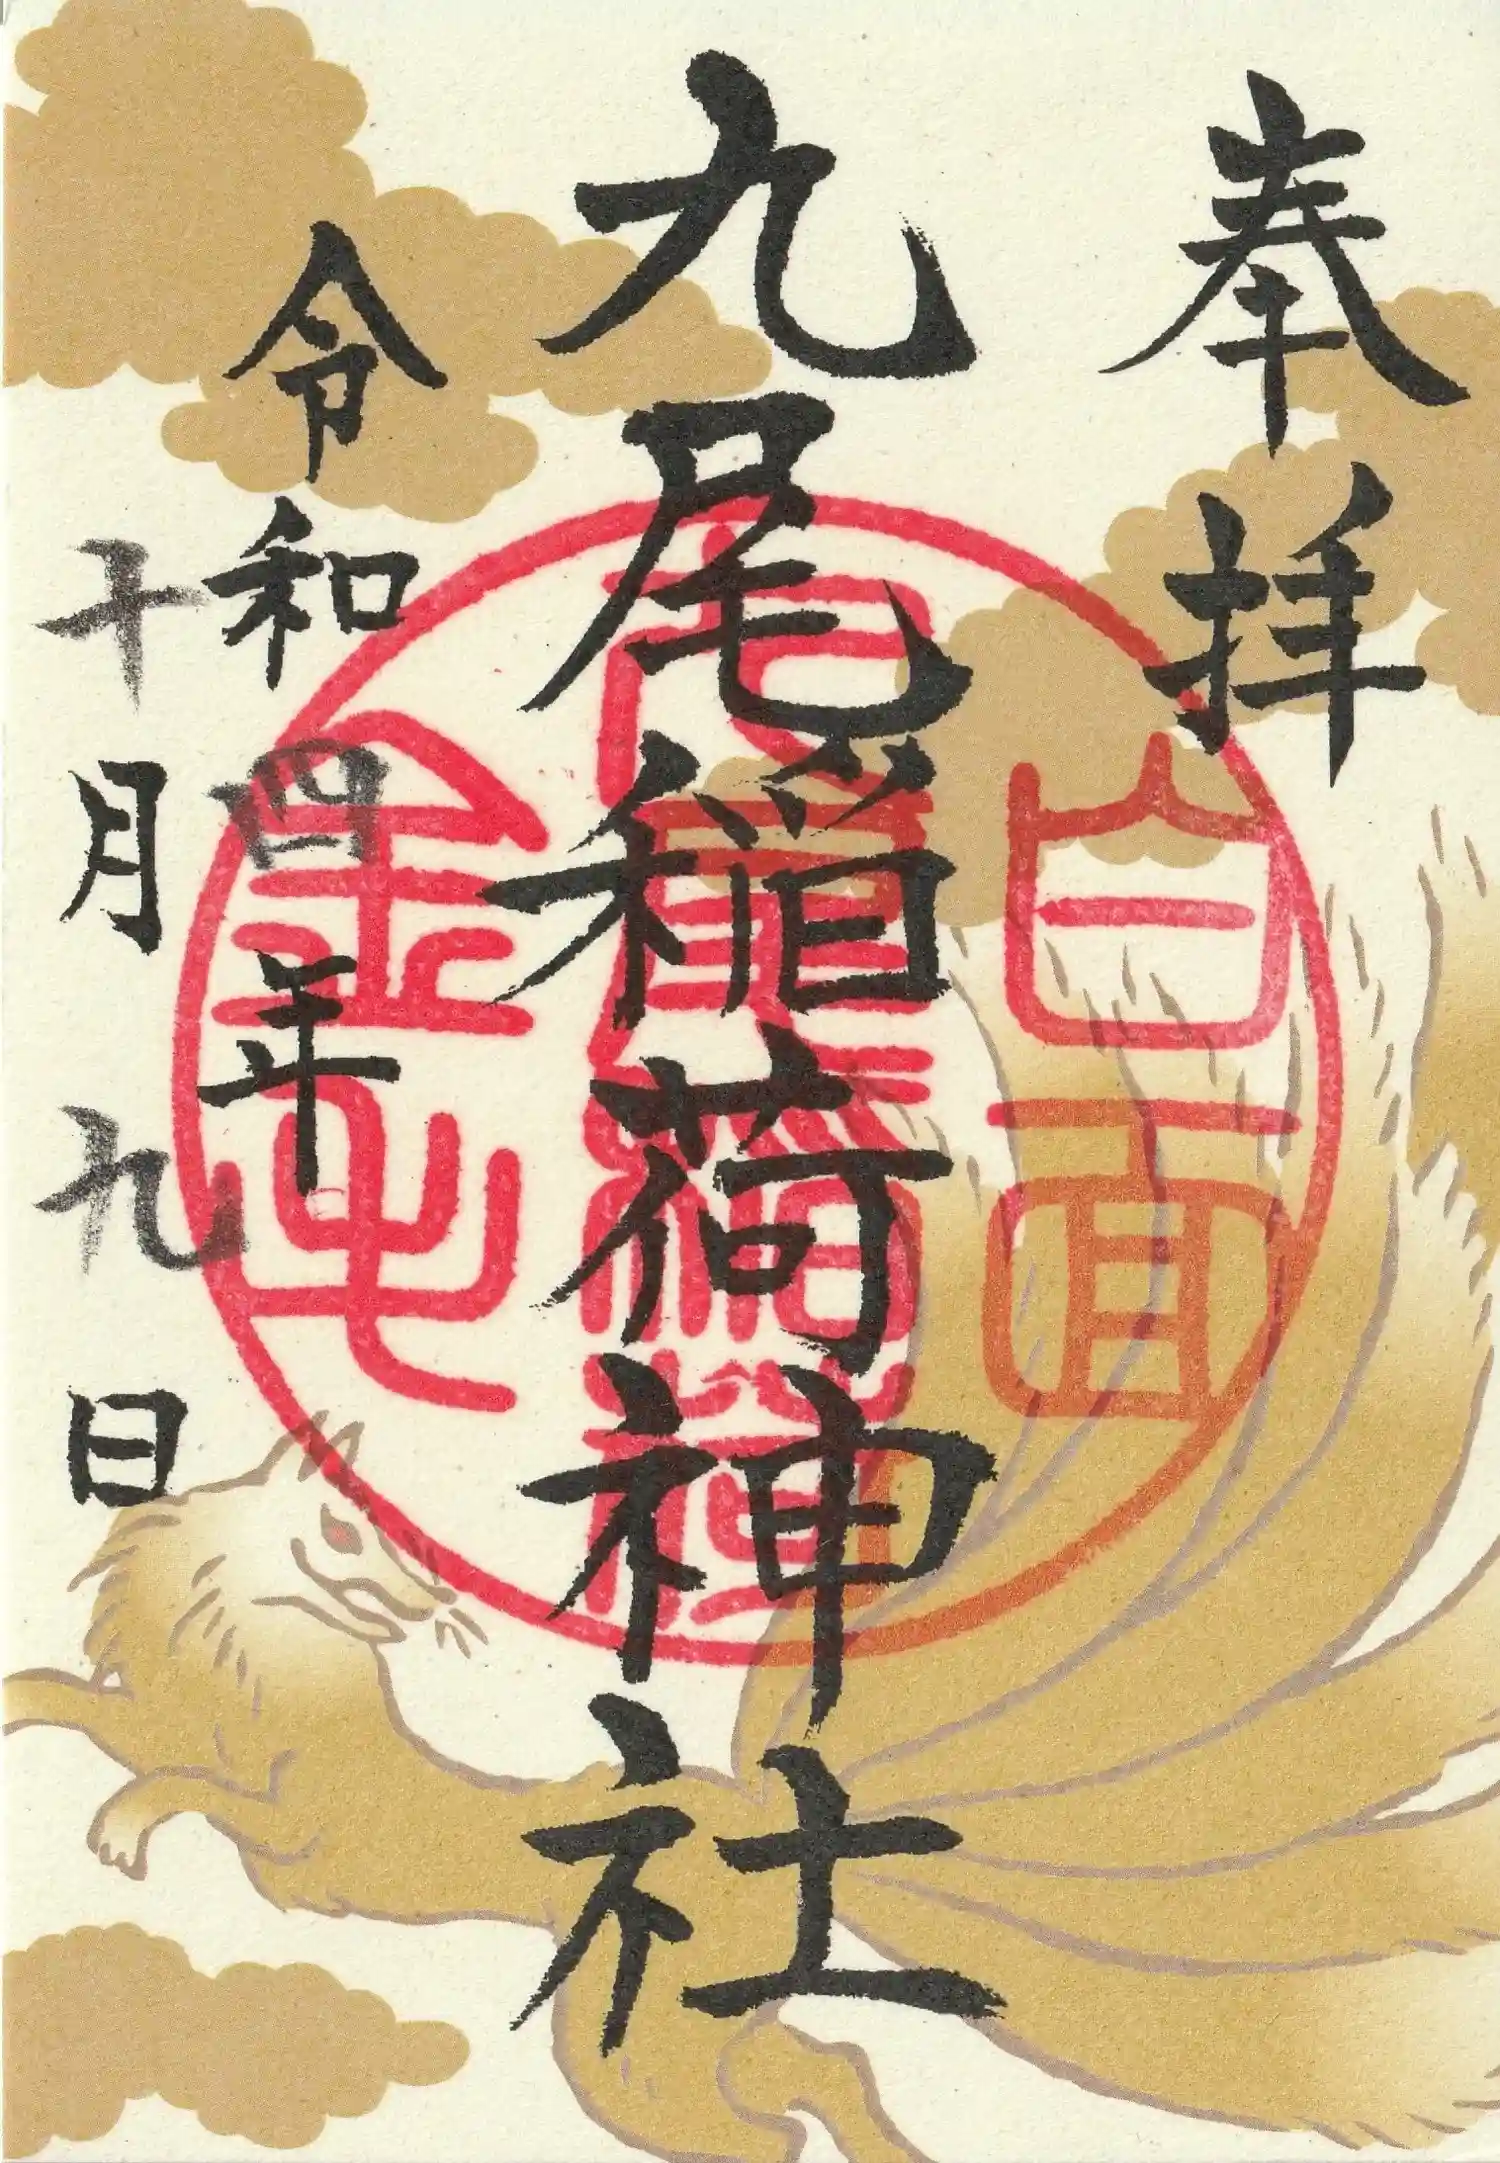 奉拝
九尾稲荷神社
令和四年
十月九日
白面
九尾稲荷
金毛